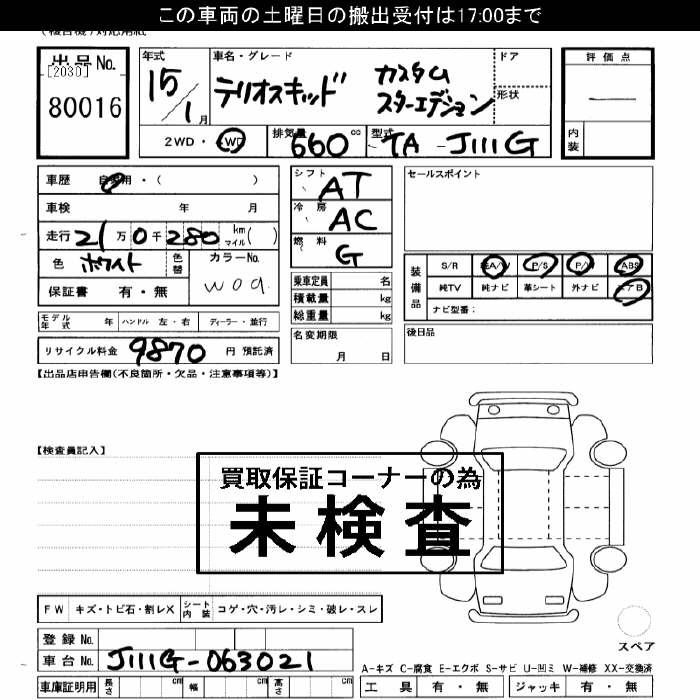 この車両の土曜日の搬出受付は17:00まで
出品No.
[2030]
80016
年式
15/1月
車名・グレード
テリオスキッド
カスタム
スターエディション
ドア
形状
評価点
内装
2WD・4WD
排気量 660 cc
型式 TA - J111G
車歴 自家用・( )
車検 年 月
走行 21万0千280 km マイル( )
色 ホワイト
色替
カラーNo.
W09
保証書 有・無
シフト AT
冷房 AC
燃料 G
乗車定員 名
積載量 kg
総重量 kg
セールスポイント
装備品
S/R 純A/W P/S P/W ABS
純TV 純ナビ 革シート 外ナビ エアB
ナビ型番:
モデル年式 年 ハンドル 左・右 ディーラー・並行
名変期限
月 日
後日品
リサイクル料金 9870 円 預託済
【出品店申告欄(不良箇所・欠品・注意事項等)】
【検査員記入】
買取保証コーナーの為
未検査
FW キズ・トビ石・割レX シート内装 コゲ・穴・汚レ・シミ・破レ・スレ
登録No.
車台No. J111G-063021
スペア
A-キズ C-腐食 E-エクボ S-サビ U-凹ミ W-補修 XX-交換済
車庫証明用 長さ cm 幅 cm 高さ cm
工具 有・無 ジャッキ 有・無